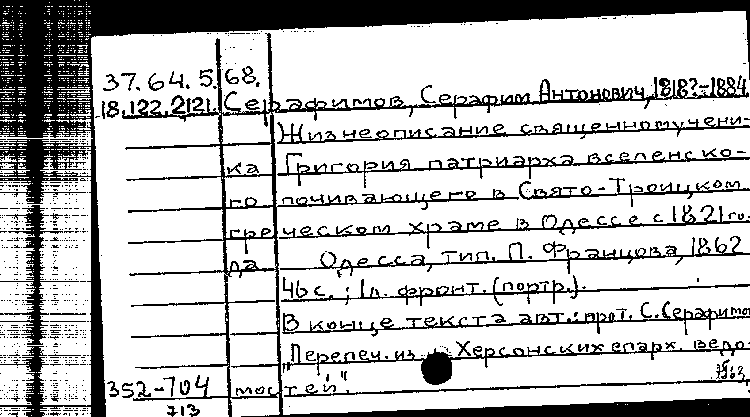 37.64.5.68.
18.122.2121. Серафимов, Серафим Антонович, 1818?-1884
Жизнеописание священномучени-
ка Григория патриарха вселенско-
го почивающего в Свято-Троицком
греческом храме в Одессе с 1821 го-
да
Одесса, тип. П. Францова, 1862
46 с.; 1 л. фронт. (портр.).
В конце текста авт.: прот. С. Серафимов
"Перепеч. из Херсонских епарх. ведо-
352-704 мостей".
713